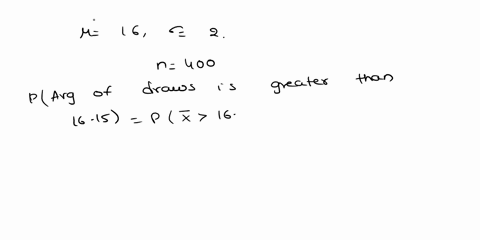 μ= 16, σ= 2.
n= 400
P(Avg of draws is greater than
16.15) = P(x̄ > 16.